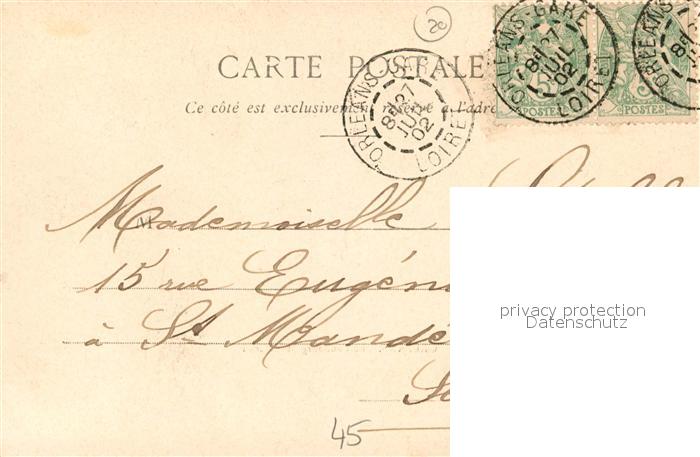 20
CARTE POSTALE
Ce côté est exclusivement réservé à l'adre
ORLEANS-GARE 8E 27 JUIL 02 LOIRET
ORLEANS-GARE 8E 27 JUIL 02 LOIRET
ORLEANS
5 POSTES
5 POSTES
M
Mademoiselle
15 rue Eugén
à St Mandé
45
privacy protection
Datenschutz